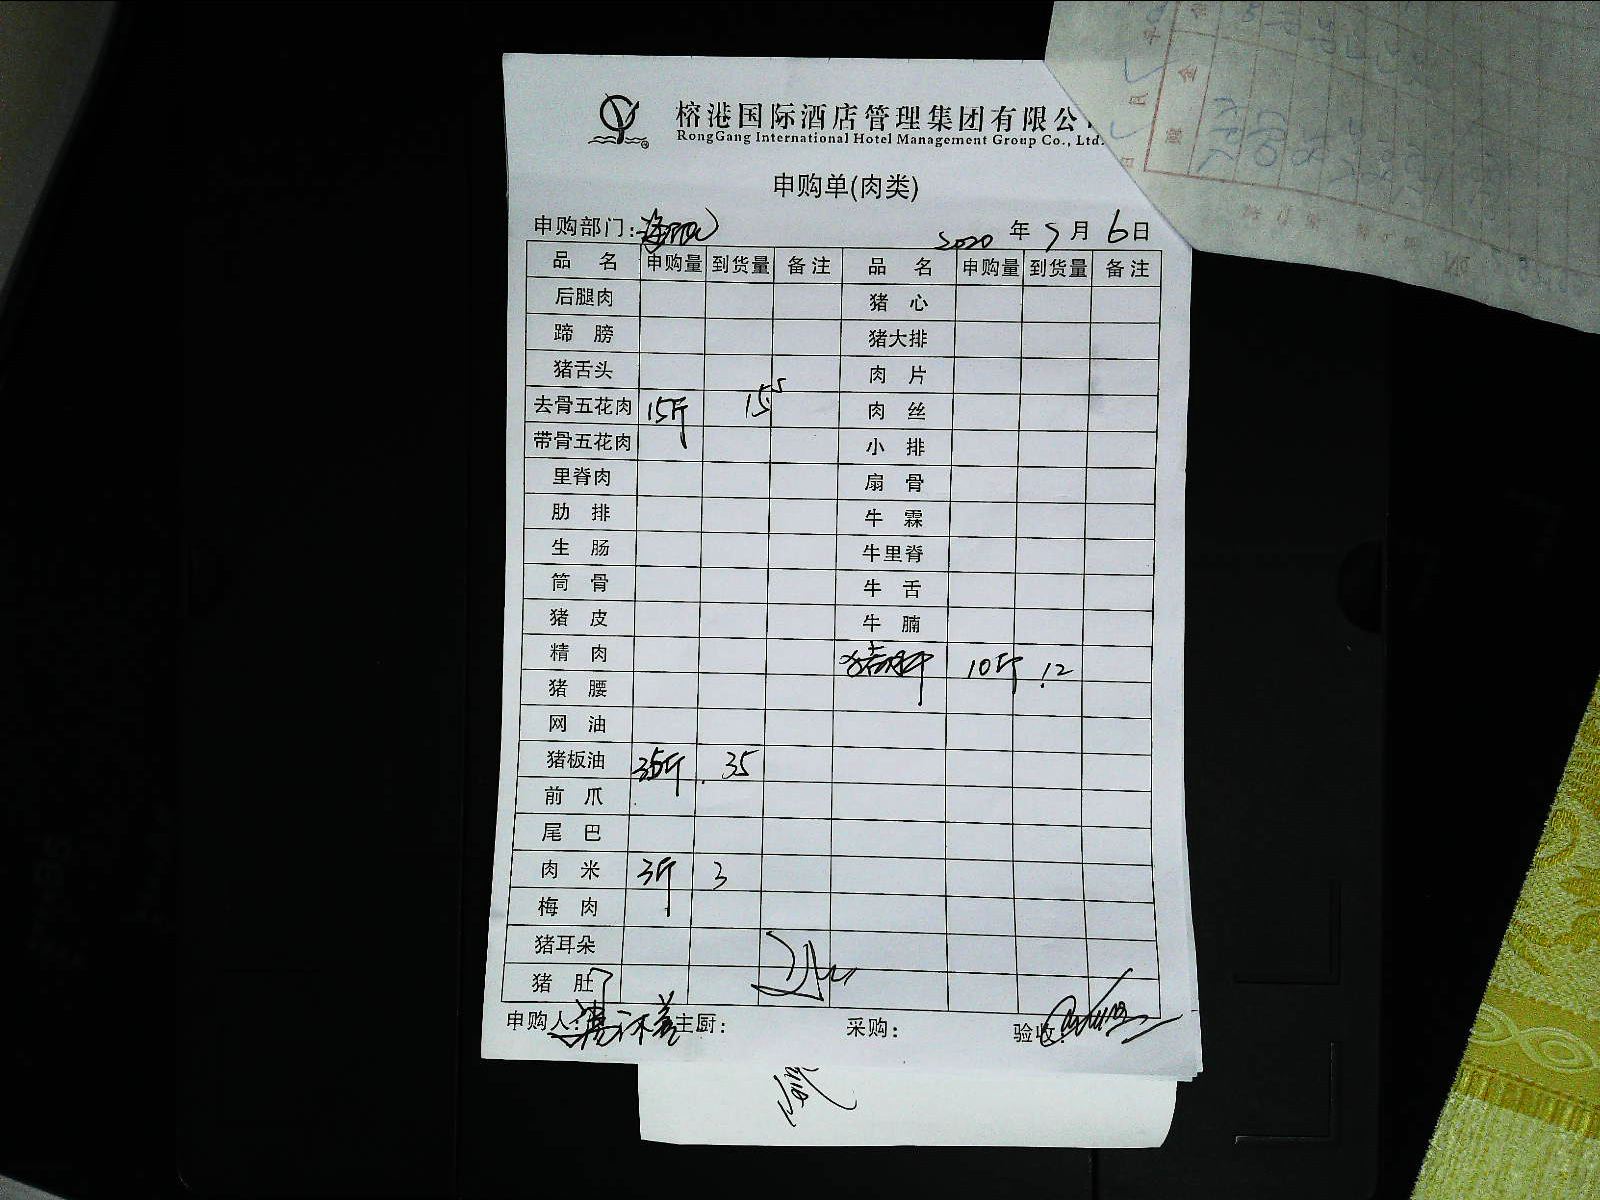 榕港国际酒店管理集团有限公
RongGang International Hotel Management Group Co., Ltd.
申购单(肉类)
申购部门: 2020 年 5 月 6 日
品 名 申购量 到货量 备注 品 名 申购量 到货量 备注
后腿肉 猪 心
蹄 膀 猪大排
猪舌头 肉 片
去骨五花肉 15斤 15⁵ 肉 丝
带骨五花肉 小 排
里脊肉 扇 骨
肋 排 牛 霖
生 肠 牛里脊
筒 骨 牛 舌
猪 皮 牛 腩
精 肉 猪肝 10斤 12
猪 腰
网 油
猪板油 35斤 35
前 爪
尾 巴
肉 米 3斤 3
梅 肉
猪耳朵
猪 肚
申购人: 主厨: 采购: 验收: